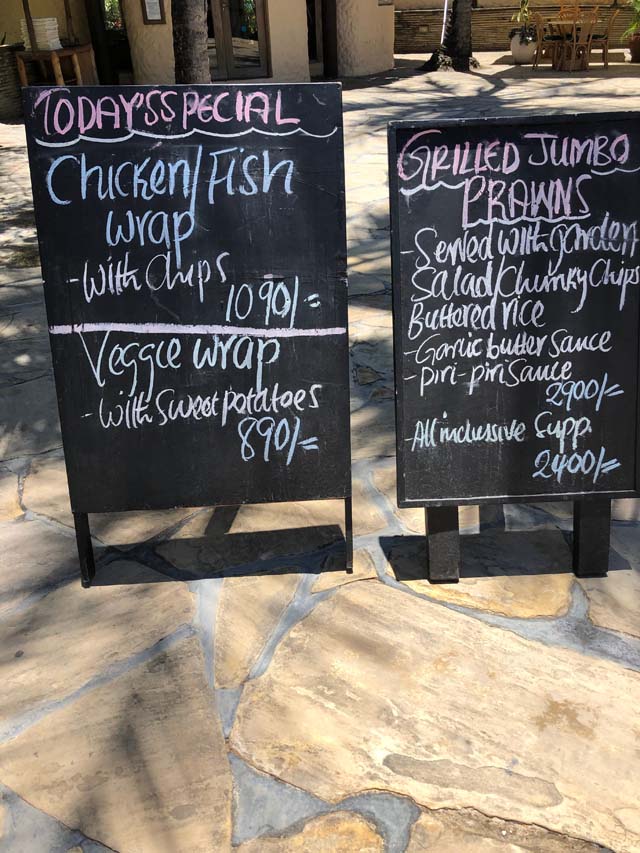 TODAY'SSPECIAL
Chicken/Fish
wrap
-with chips
1090/=
Veggie wrap
-with sweet potatoes
890/=
GRILLED JUMBO
PRAWNS
-Served with garden
Salad/Chunky Chips
Buttered rice
-Garlic butter sauce
-piri-piri Sauce
2900/=
-All inclussive Supp.
2400/=